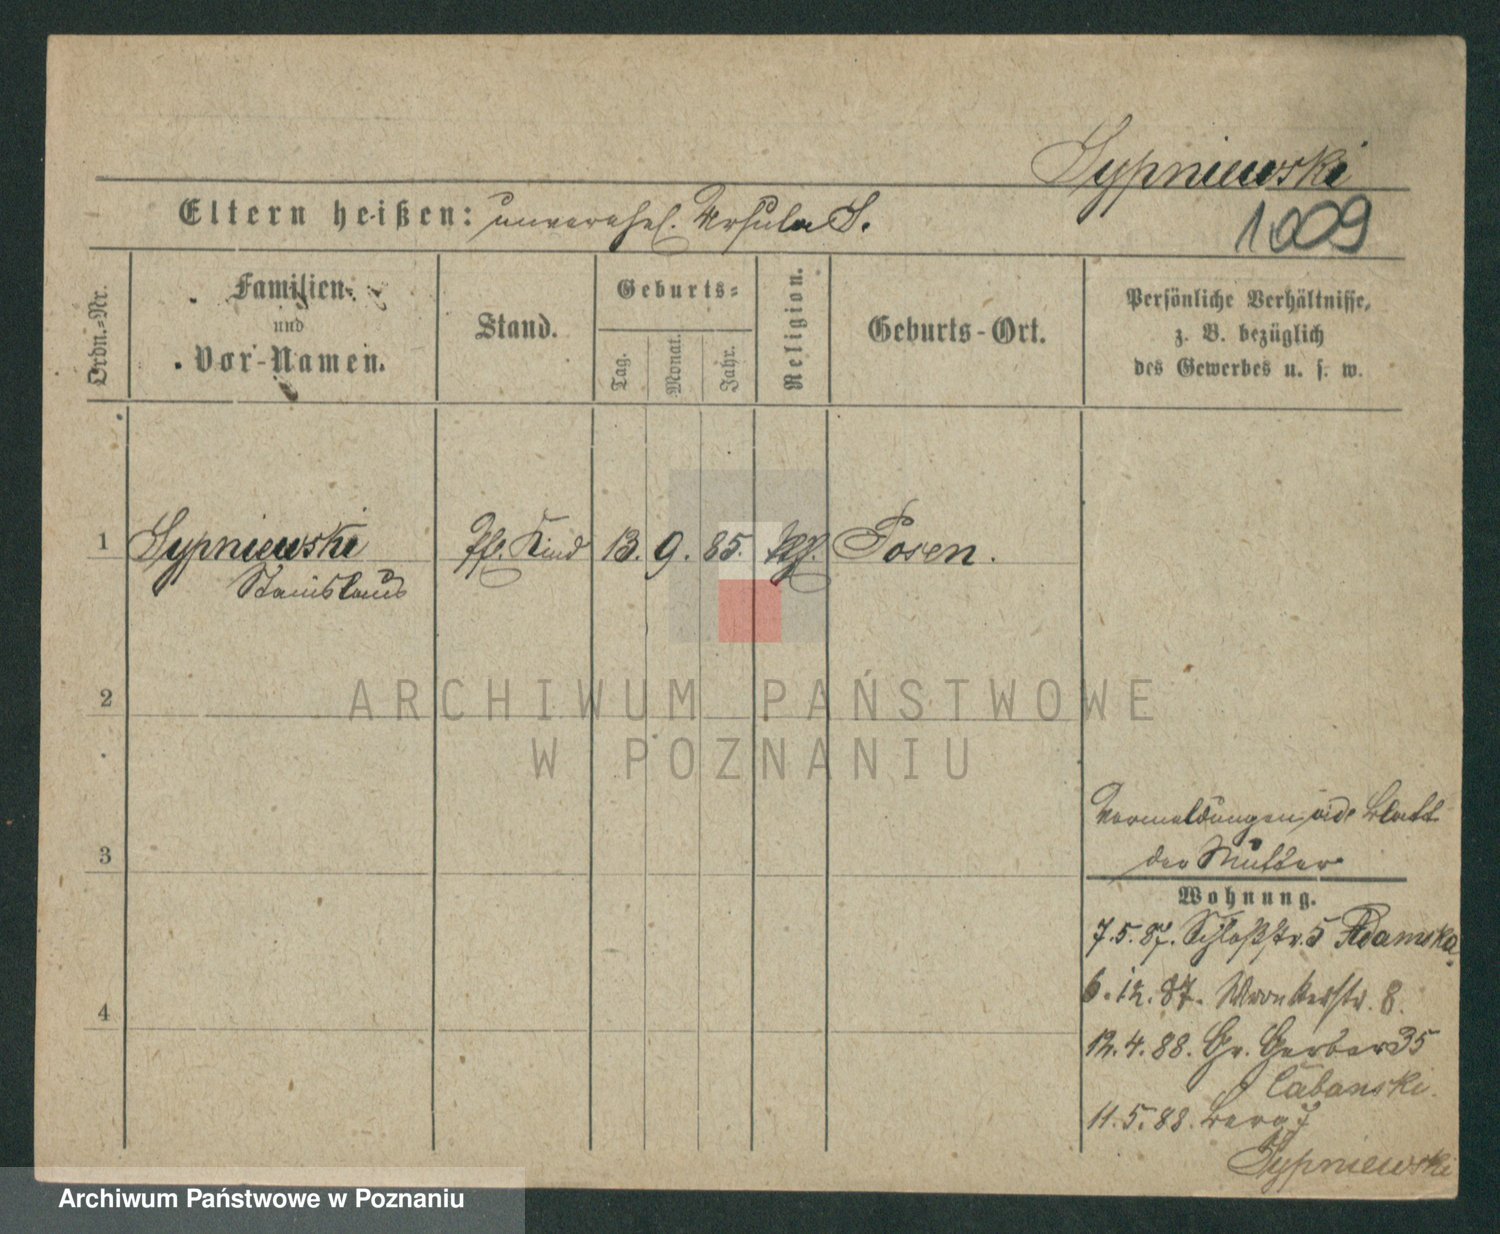 Sypniewski
Eltern heißen: unverehel. Ursula S.
1009
Ordn.-Nr.
Familien-
und
Vor-Namen.
Stand.
Geburts-
Tag.
Monat.
Jahr.
Religion.
Geburts-Ort.
Persönliche Verhältnisse,
z. B. bezüglich
des Gewerbes u. s. w.
1 Sypniewski Pfl. Kind 13. 9. 85. kth. Posen.
Stanislaus
2
ARCHIWUM PAŃSTWOWE
W POZNANIU
Vormeldungen vide Blatt
der Mutter
3
Wohnung.
7.5.87. Schloßstr. 5 Adamska
6.12.87. Wronkerstr. 8.
4
12.4.88. Gr. Gerber 35
Cabanski.
11.5.88. Berg 7
Sypniewski
Archiwum Państwowe w Poznaniu